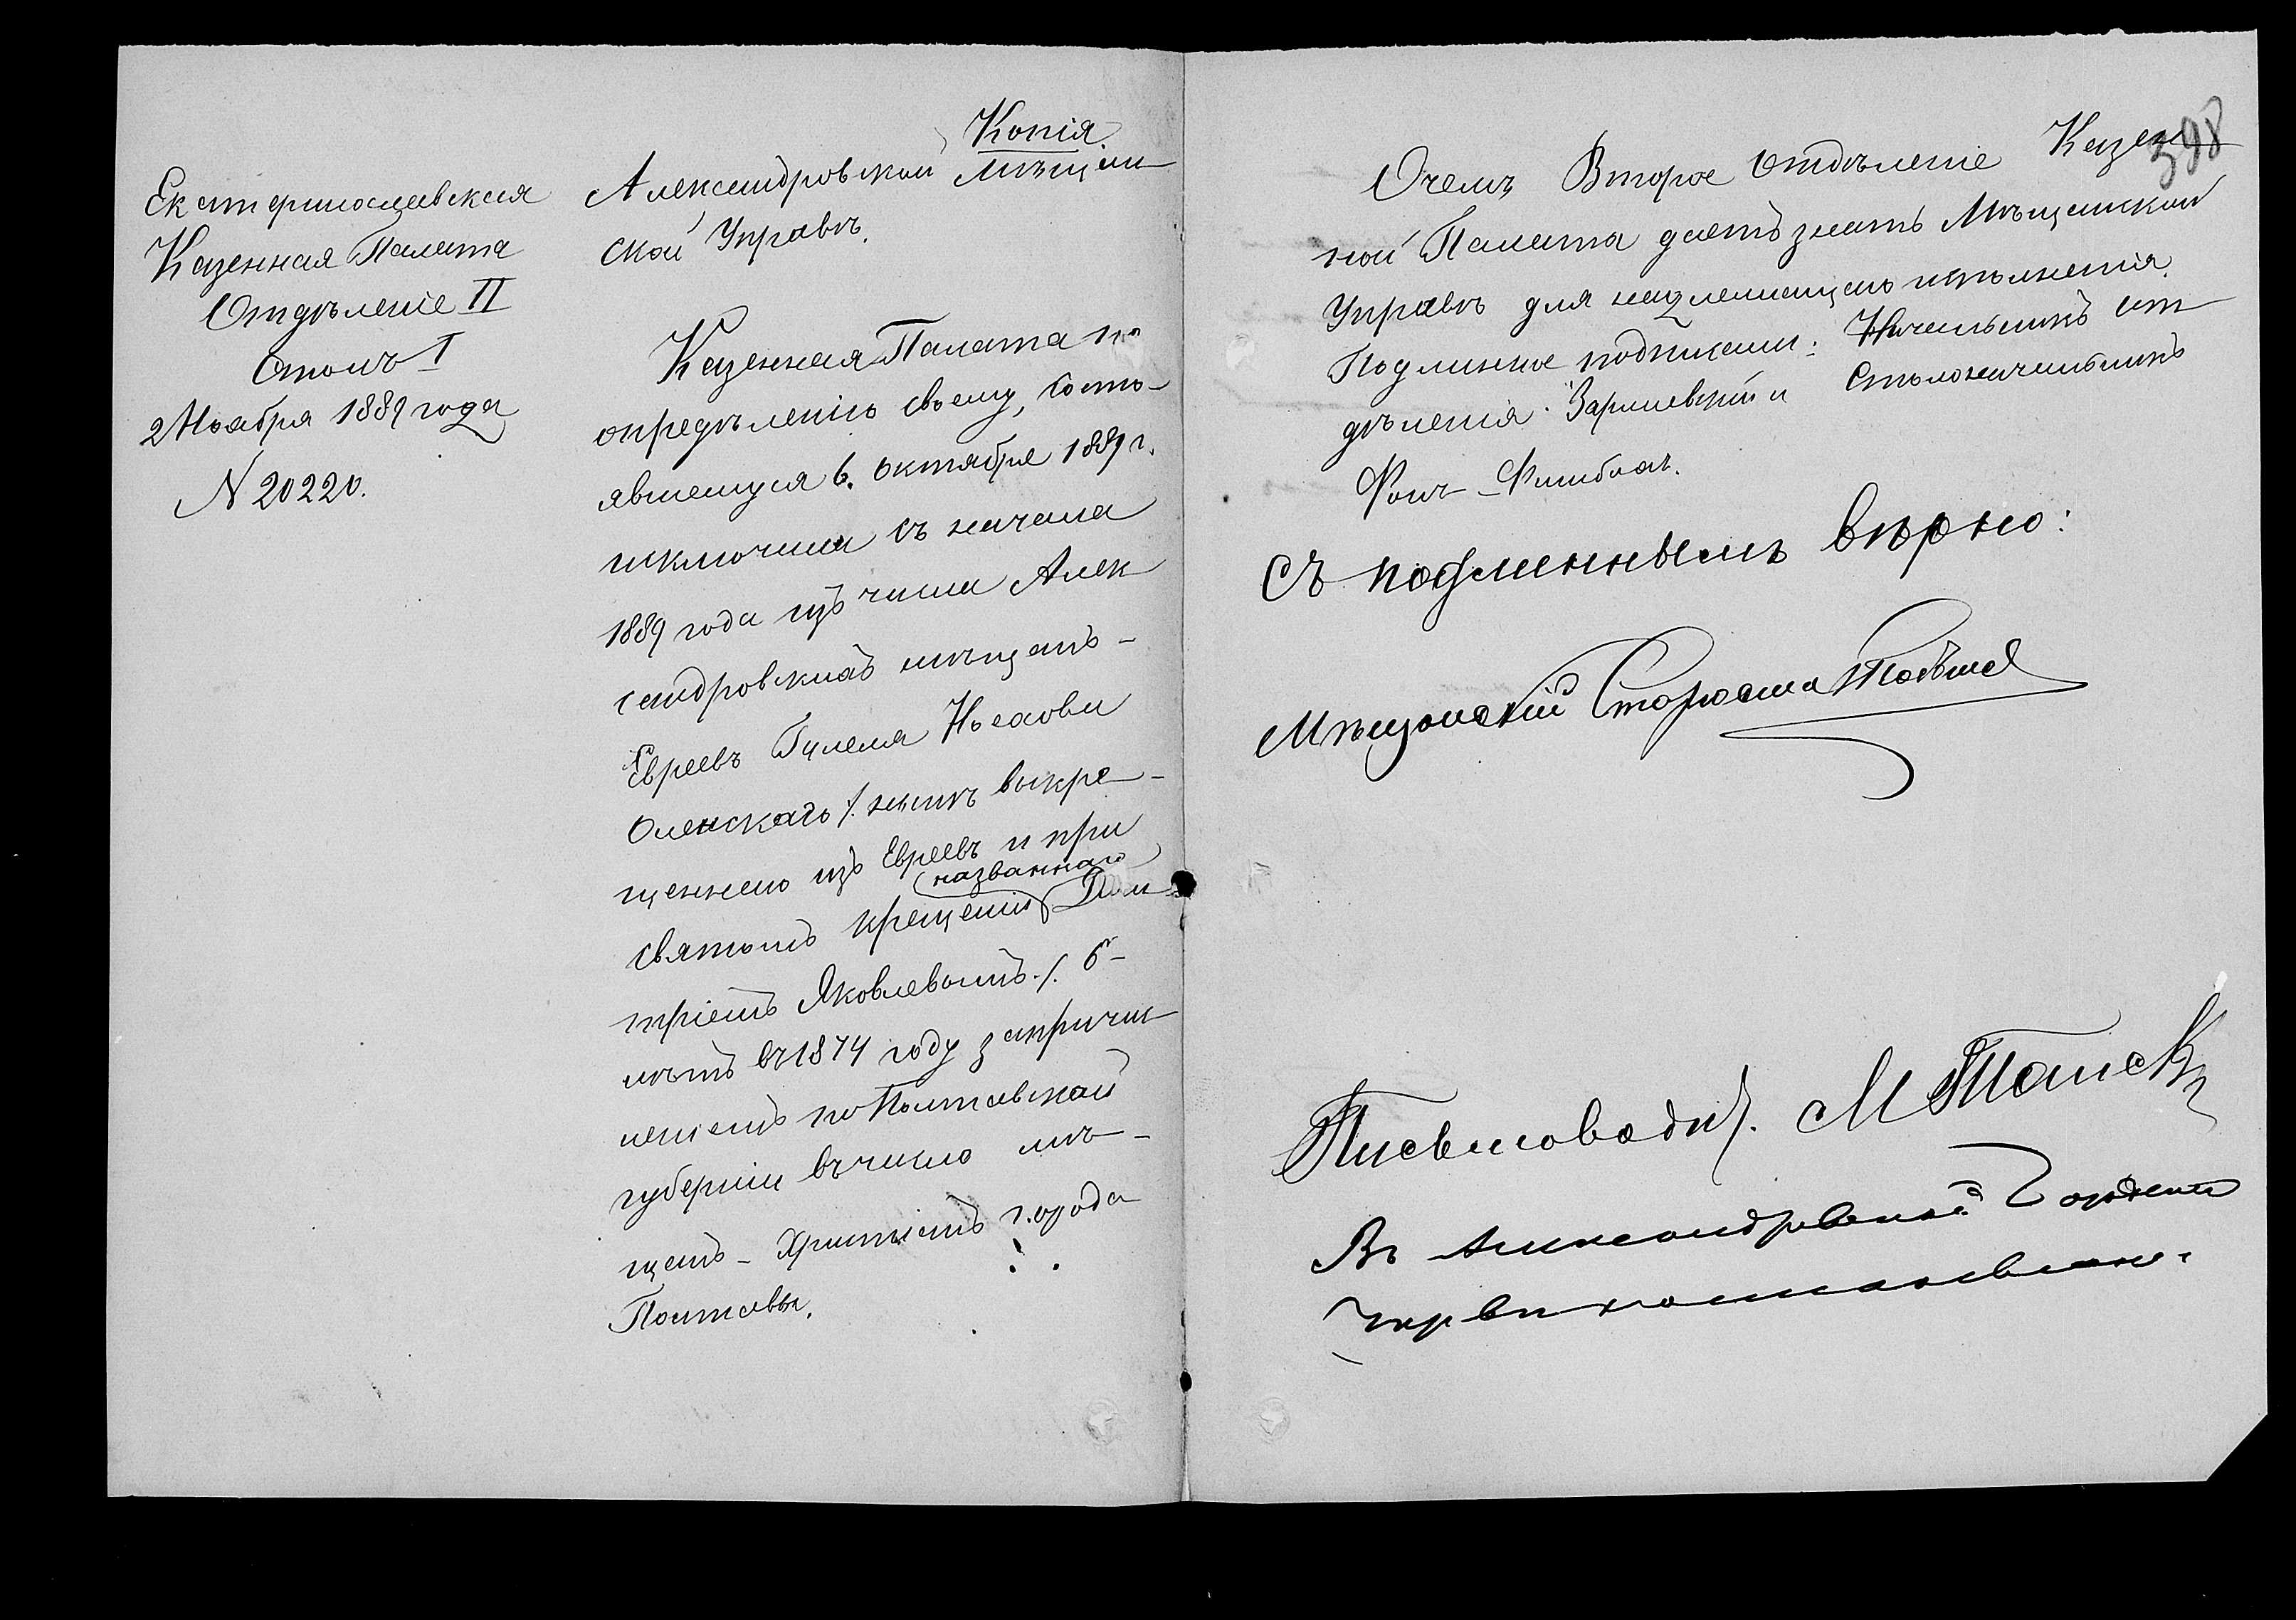 Екатеринославская
Казенная Палата
Отдѣленіе II
Столъ I
2 Ноября 1889 года
N 20220.
Копія
Александровской Мѣщан
ской Управѣ.
Казенная Палата по
опредѣленію своему, состо-
явшемуся 6. октября 1889 г.
исключила съ начала
1889 года изъ числа Алек
сандровскихъ мѣщанъ-
Евреевъ
Оленскаго /. нынѣ выкре-
щеннаго изъ Евреевъ и при
названнаго
святомъ крещеніи Дми
тріемъ Яковлевымъ ./. 6-
лѣтъ въ 1874 году за причис
леніемъ по Полтавской
губерніи въ число мѣ-
щанъ - Христіанъ города
Полтавы.
398
О чемъ Второе Отдѣленіе Казен
ной Палаты даетъ знать Мѣщанской
Управѣ для надлежащаго исполненія.
Подлинное подписали: Начальникъ От
дѣленія и Столоначальникъ
Фонъ-
Съ подлиннымъ вѣрно:
Мѣщанскій Староста
Письмоводит. М
Въ Александровской Городской